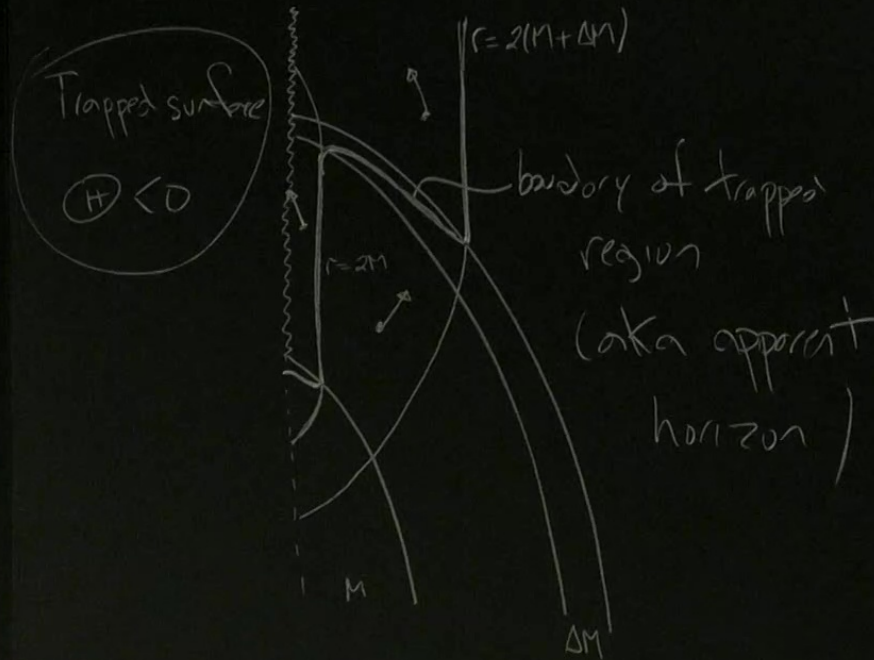 Trapped surface
Ⓗ < 0
r=2(M+ΔM)
boundary of trapped
region
(aka apparent
horizon)
r=2M
M
ΔM